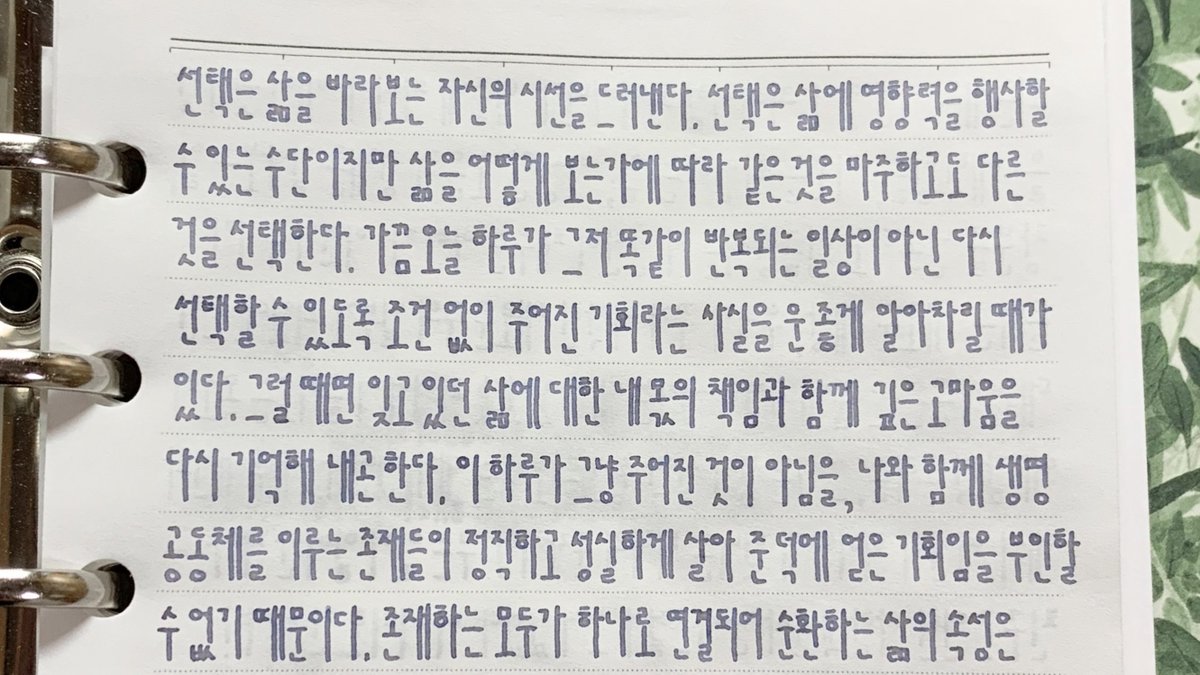 선택은 삶을 바라보는 자신의 시선을 드러낸다. 선택은 삶에 영향력을 행사할
수 있는 수단이지만 삶을 어떻게 보는가에 따라 같은 것을 마주하고도 다른
것을 선택한다. 가끔 오늘 하루가 그저 똑같이 반복되는 일상이 아닌 다시
선택할 수 있도록 조건 없이 주어진 기회라는 사실을 운 좋게 알아차릴 때가
있다. 그럴 때면 잊고 있던 삶에 대한 내 몫의 책임과 함께 깊은 고마움을
다시 기억해 내곤 한다. 이 하루가 그냥 주어진 것이 아님을, 나와 함께 생명
공동체를 이루는 존재들이 정직하고 성실하게 살아 준 덕에 얻은 기회임을 부인할
수 없기 때문이다. 존재하는 모두가 하나로 연결되어 순환하는 삶의 속성은